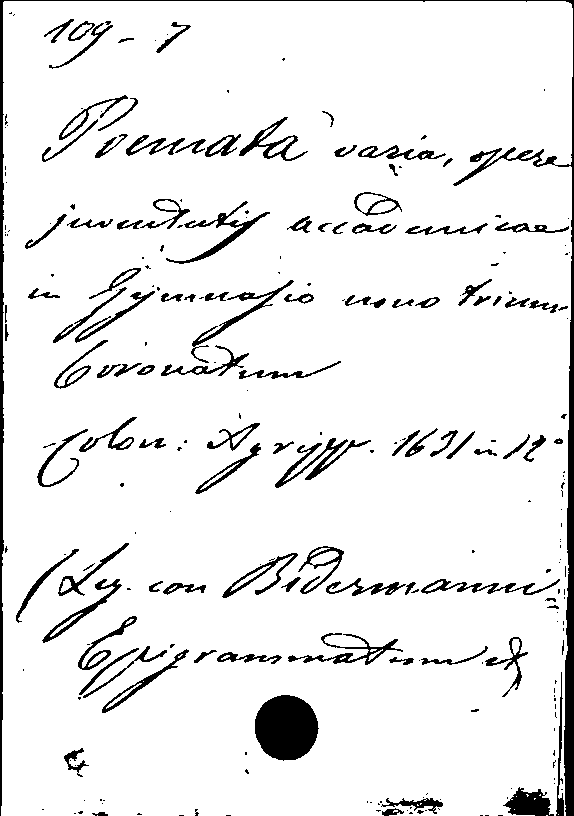 109-7
Poemata varia, opere
juventutis accademicae
in Gymnasio novo trium
Coronatum
Colon: Agripp. 1631 in 12°
(Leg. con Bidermanni
Epigrammatum &